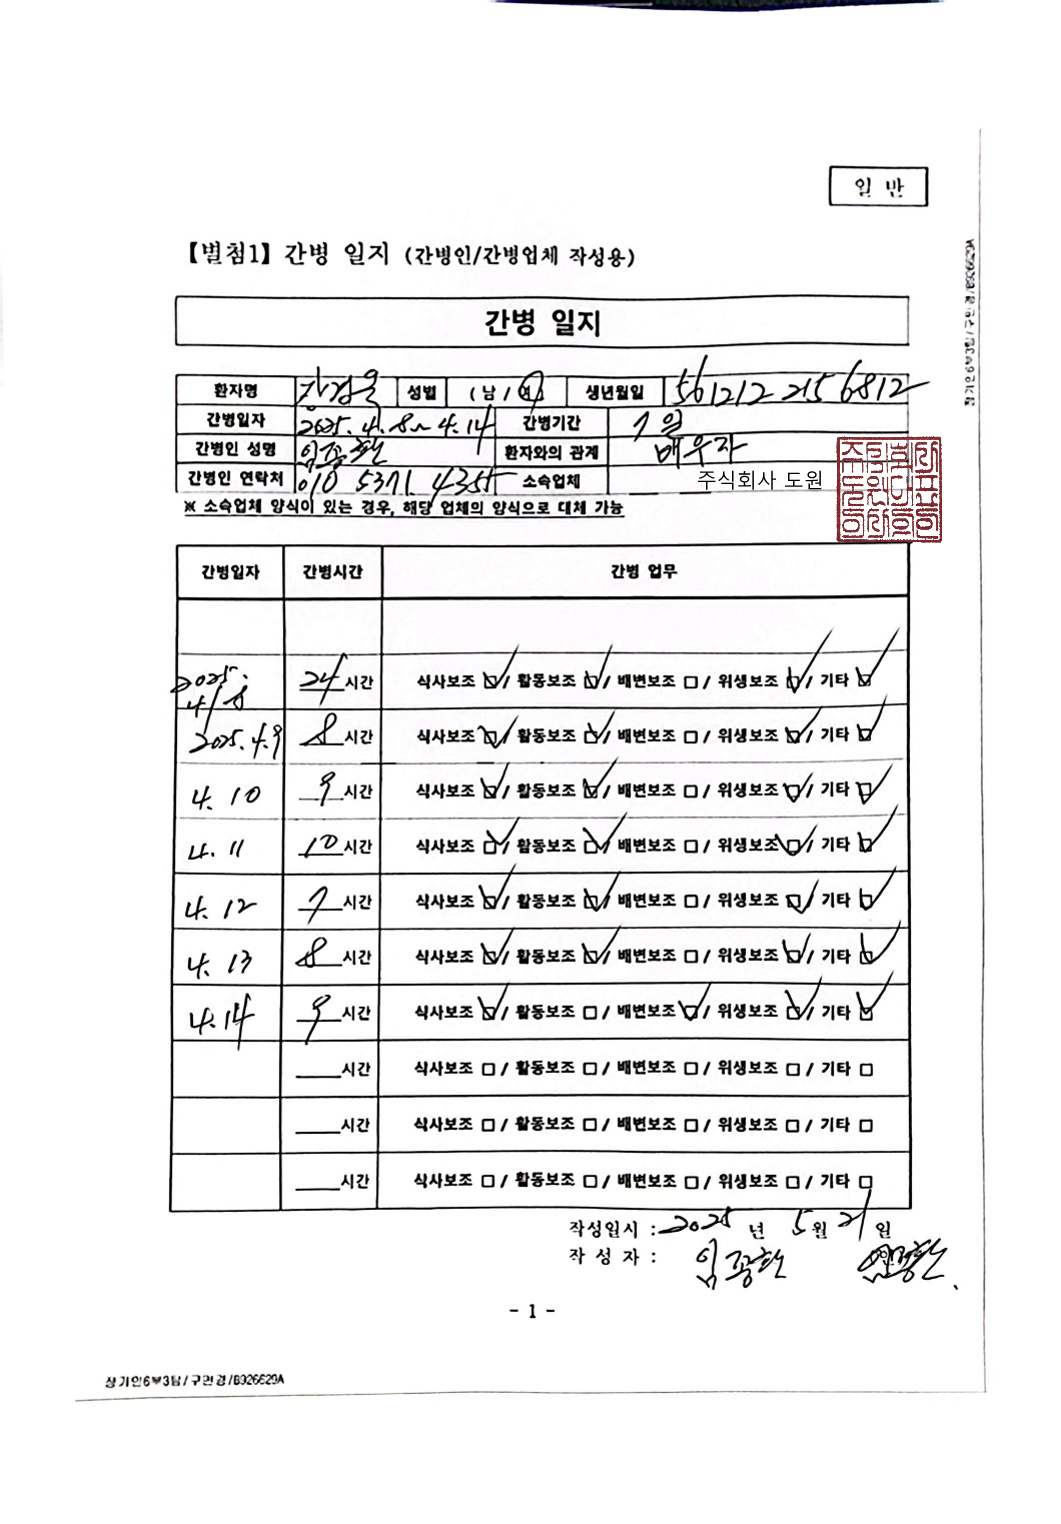 일 반
장기인6부3팀/구민경/B926629A
【별첨1】 간병 일지 (간병인/간병업체 작성용)
간병 일지
환자명 성별 (남/여) 생년월일 561212 2156812
간병일자 2025. 4. 8~ 4.14 간병기간 7일
간병인 성명 환자와의 관계 배우자
간병인 연락처 010 5371 4355 소속업체 주식회사 도원
※ 소속업체 양식이 있는 경우, 해당 업체의 양식으로 대체 가능
간병일자 간병시간 간병 업무
2025. 4/8 24시간 식사보조 ☑ / 활동보조 ☑ / 배변보조 □ / 위생보조 ☑ / 기타 ☑
2025.4.9 8시간 식사보조 ☑ / 활동보조 ☑ / 배변보조 □ / 위생보조 ☑ / 기타 ☑
4. 10 9시간 식사보조 ☑ / 활동보조 ☑ / 배변보조 □ / 위생보조 ☑ / 기타 ☑
4. 11 10시간 식사보조 ☑ / 활동보조 ☑ / 배변보조 □ / 위생보조 ☑ / 기타 ☑
4. 12 7시간 식사보조 ☑ / 활동보조 ☑ / 배변보조 □ / 위생보조 ☑ / 기타 ☑
4. 13 8시간 식사보조 ☑ / 활동보조 ☑ / 배변보조 □ / 위생보조 ☑ / 기타 ☑
4.14 9시간 식사보조 ☑ / 활동보조 □ / 배변보조 ☑ / 위생보조 ☑ / 기타 ☑
____시간 식사보조 □ / 활동보조 □ / 배변보조 □ / 위생보조 □ / 기타 □
____시간 식사보조 □ / 활동보조 □ / 배변보조 □ / 위생보조 □ / 기타 □
____시간 식사보조 □ / 활동보조 □ / 배변보조 □ / 위생보조 □ / 기타 □
작성일시 : 2025 년 5월 21일
작 성 자 :
- 1 -
장기인6부3팀/구민경/B926629A